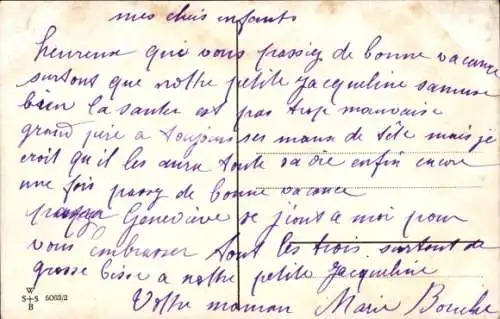 mes chers enfants
heureux que vous passiez de bonne vacance
surtout que nottre petite Jacqueline samuse
bien la santer est pas trop mauvaise
grand père a toujours ses maux de tête mais je
croit qu'il les aura toute sa vie enfin encore
une fois passez de bonne vacance
Geneviève se jiont a moi pour
vous embrasser tout les trois surtout de
grosse bise a nottre petite Jacqueline
Vottre maman Marie
W
S+S 6063/2
B